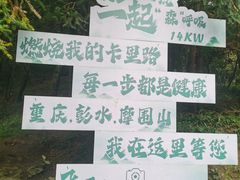 一起"霖"呼吸
14KW
燃烧我的卡里路
每一步都是健康
重庆.彭水.摩围山
我在这里等您